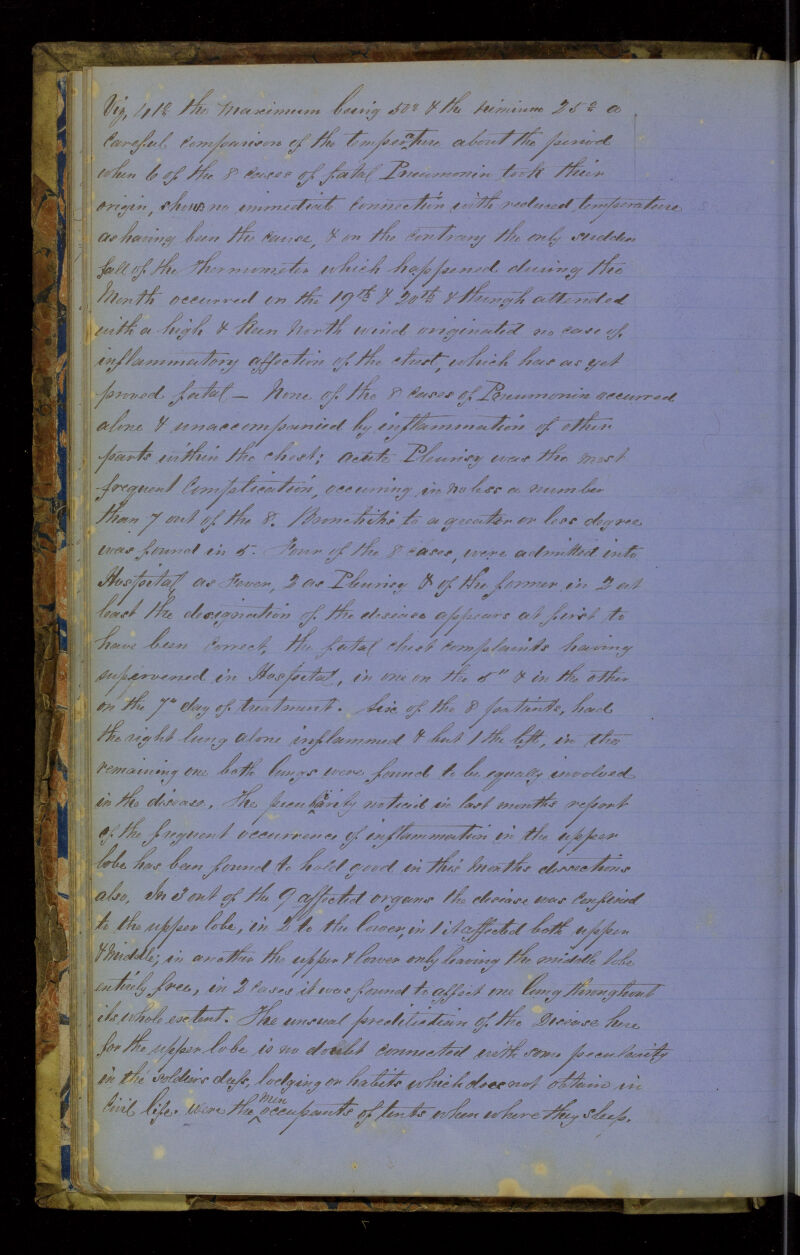 Viz, 41° the Maximum being 50° & the minium 25° a
careful comparison of the temperture about the period
when 6 of the 8 cases of fatal Pneumonia took their
origin, shews no immediate connection with reduced temperature
as having been the cause, & on the contrary the only sudden
fall of the Thermometer which happened during the
Month occurred on the 19th & 20th & though attended
with a high & keen North wind originated no case of
inflammatory affection of the chest, which has as yet
proved fatal — None of the 8 cases of Pneumonia occurred
alone & unaccompanied by inflammation of other
parts within the chest; acute Pleurisy was the most
frequent Complication, occurring in no less a number
than 7 out of the 8. Bronchitis to a greater or less degree
was found in 5. Four of the 8 cases, were admitted into
Hospital as Fever, 2 as Pleurisy & of the former in 2 at
least the designation of the disease appears at first to
have been correct, the fatal chest complaints having
supervened in Hospital, in one on the 5" & in the other
on the 7" day of treatment. Six of the 8 patients, had
the right lung alone inflammed & but 1 the left, in the
remaining one both lungs were found to be equally involved
in the disease. The peculiarity noticed in last months report
of the frequent occurrence of inflammation in the upper
lobe has been found to hold good in this Months dissections
also, In 3 out of the 9 affected organs the disease was confined
to the upper lobe, in 2 to the lower, in 1 it affected both upper
& middle; in another the upper & lower only leaving the middle lobe
entirely free, in 2 cases it was found to affect one lung throughout
its whole extent. The unsual predilection of the Disease here
for the upper lobe is no doubt connected with some peculiarity
in the soldiers dress, lodging or habits which does not obtain in
Civil life. were the men occupants of tents when where they sleep.